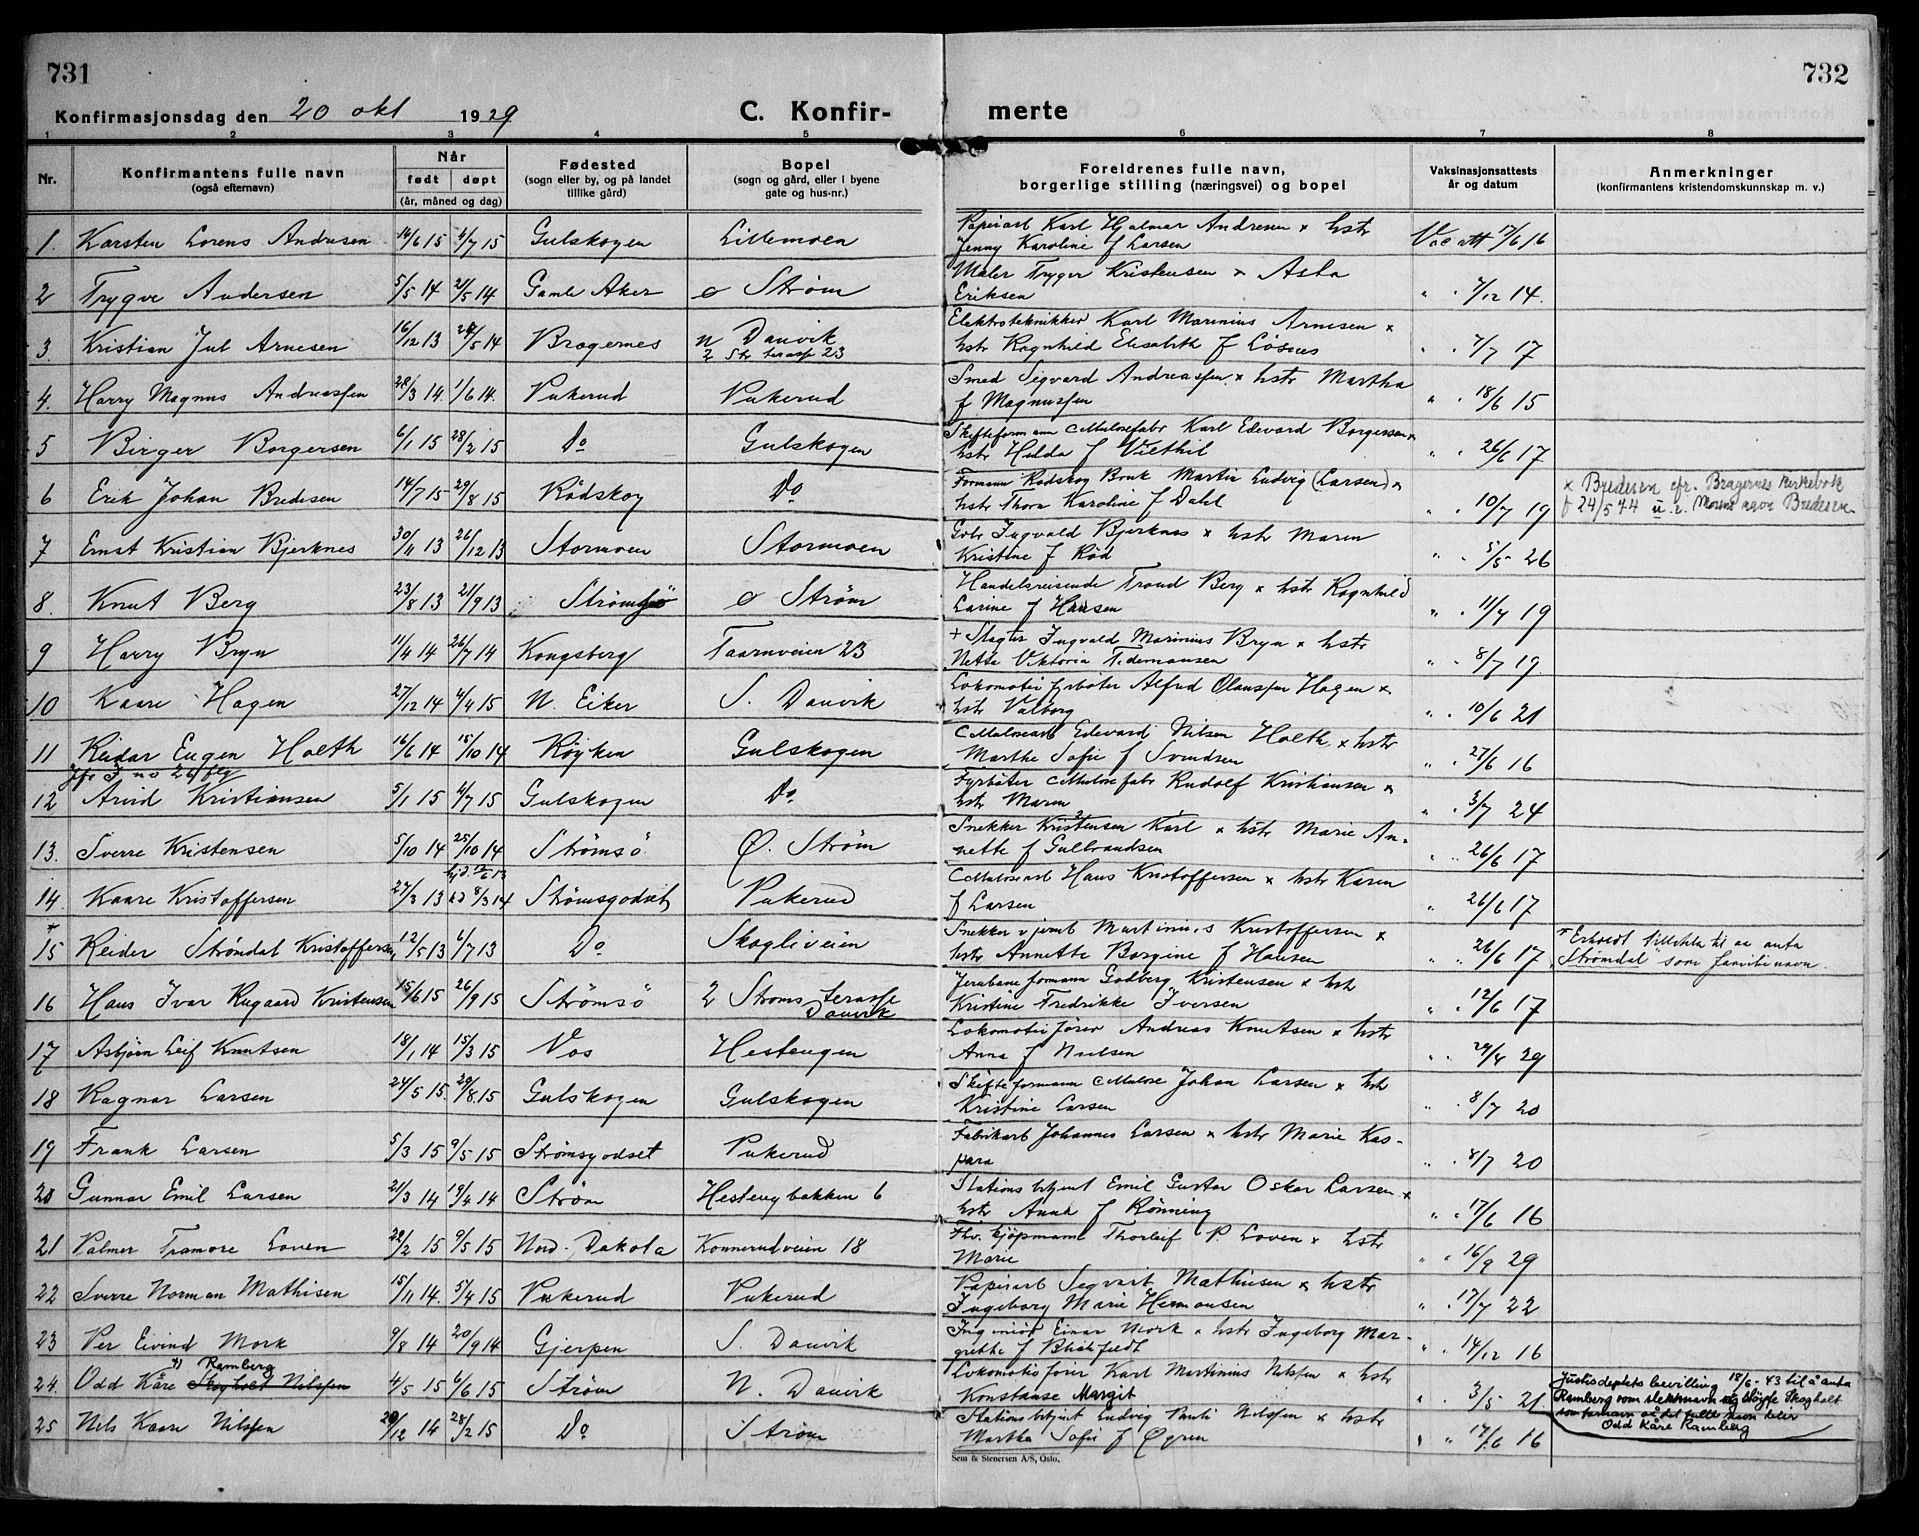 731
732
Konfirmasjonsdag den 20 okt 1929
C. Konfir-
merte
1 2 3 4 5 6 7 8
Nr.
Konfirmantens fulle navn
(også efternavn)
Når
født døpt
(år, måned og dag)
Fødested
(sogn eller by, og på landet
tillike gård)
Bopel
(sogn og gård, eller i byene
gate og hus-nr.)
Foreldrenes fulle navn,
borgerlige stilling (næringsvei) og bopel
Vaksinasjonsattests
år og datum
Anmerkninger
(konfirmantens kristendomskunnskap m. v.)
1. Karsten Lorens Andresen 14/6 15 4/7 15 Gulskogen Lillemoen Papirarb Karl Hjalmar Andresen x hstr
Jenny Karoline f Larsen Vac att 17/6 16
2 Trygve Andersen 5/5 14 21/5 14 Gamle Aker ø Strøm Maler Trygve Kristensen x Asta
Eriksen " " 7/12 14.
3. Kristian Jul Arnesen 16/12 13 24/5 14 Bragernes N Danvik
2 Str terasse 23 Elektroteknikker Karl Marinius Arnesen x
hstr Ragnhild Elisabeth f Løsnes " " 7/7 17
4. Harry Magnus Andreassen 28/3 14. 1/6 14. Pukerud Pukerud Smed Sigvard Andreassen x hstr Martha
f Magnussen " " 18/6 15
5 Birger Borgersen 6/1 15 28/2 15 Do Gulskogen Skifteformann Cellulosefabr Karl Edevard Borgersen x
hstr Hulda f Viethil " " 26/6 17
6 Erik Johan Bredesen 14/7 15 29/8 15 Rødskog Do Formann Rødskog Bruk Martin Ludvig (Larsen) x
hstr Thora Karoline f Dahl " " 10/7 19 x Bredesen cfr. Bragernes kirkebok
f 24/5 44 u. e. Morens navn Bredesen
7 Ernst Kristian Bjerknes 30/11 13 26/12 13 Stormoen Stormoen Gbr Ingvald Bjerknes x hstr Maren
Kristine f Rød " " 5/5 26
8. Knut Berg 23/8 13 21/9 13 Strømsø ø Strøm Handelsreisende Trond Berg x hstr Ragnhild
Larine f Hansen " " 11/7 19
9 Harry Bryn 11/4 14 26/7 14 Kongsberg Taarnveien 23 + Slagter Ingvald Marinius Bryn x hstr
Netta Viktoria Tidemansen " " 8/7 19.
10 Kaare Hagen 27/12 14 4/4 15 N. Eiker S. Danvik Lokomotiv fyrbøter Alfred Olaussen Hagen x
hstr Valborg " " 10/6 21
11 Reidar Eugen Holth 16/6 14 18/10 14 Røyken Gulskogen Cellulosearb Edevard Nilsen Holth x hstr
Marthe Sofie f Svendsen " " 27/6 16
Jfr I no 26 flg
12 Arvid Kristiansen 5/1 15 4/7 15 Gulskogen Do. Fyrbøter Cellulosefabr Rudolf Kristiansen x
hstr Maren " " 3/7 24
13. Sverre Kristensen 5/10 14 25/10 14 Strømsö Ø. Strøm Snekker Kristensen Karl x hstr Marie An-
nette f Gulbrandsen " " 26/6 17
hjd. 12/6 13
14. Kaare Kristoffersen 27/3 13 kd 8/3 14 Strømsgodset Pukerud Cellulosearb Hans Kristoffersen x hstr Karen
f Larsen " 26/6 17
+
15 Reidar Strøndal Kristoffersen 12/5 13 6/7 13 Do Skogliveien Snekker v jernb Martinius Kristoffersen x
hstr Annette Borgine f Hansen " " 26/6 17 + Erholdt tilladelse til aa anta
"Strømdal" som familienavn.
16 Hans Ivar Rugaard Kristensen 15/6 15 26/9 15 Strömsö 2 Stroms terasse
Danvik Jernbane formann Godberg Kristensen x hstr
Kristine Fredrikke Iversen " " 12/6 17
17 Asbjørn Leif Knutsen 18/1 14 15/3 15 Vos Hestengen Lokomotivfører Andreas Knutsen x hstr
Anna f Nielsen " " 29/4 29
18 Ragnar Larsen 24/5 15. 29/8 15 Gulskogen Gulskogen Skifteformann Cellulose Johan Larsen x hstr
Kristine Larsen " " 8/7 20
19 Frank Larsen 5/3 15 9/5 15 Strømsgodset Pukerud Fabrikarb Johannes Larsen x hstr Marie Kas-
para " " 8/7 20
20 Gunnar Emil Larsen 21/3 14 19/4 14 Strøm Hestengbakken 6 Stations betjent Emil Gustav Oskar Larsen x
hstr Anna f Rønning " " 17/6 16
21 Palmer Tramore Loven 22/2 15 9/5 15 Nord-Dakota Konnerudveien 18 Fhv. kjøpmann Thorleif P. Loven x hstr
Marie " " 16/9 29
22 Sverre Norman Mathisen 15/11 14. 5/4 15 Pukerud Pukerud Papirarb Segvart Mathisen x hstr
Ingeborg Marie Hermansen " " 17/7 22
23 Per Eivind Mork 9/8 14 20/9 14 Gjerpen S. Danvik Ingeniør Einar Mork x hstr Ingeborg Mar-
grethe f Blickfeldt " " 14/12 16
x) Ramberg
24. Odd Kåre Skogholt Nilssen 4/5 15 6/6 15 Strøm N. Danvik Lokomotivfører Karl Martinius Nilssen x hstr
Konstanse Margit " " 3/5 21 Justisdeptets bevilling 18/6-43 til å anta
Ramberg som slektsnavn og sløyfe Skogholt
som fornavn så det fulle navn blir
Odd Kåre Ramberg
25 Nils Kaare Nilssen 29/12 14 28/2 15 Do Strøm Stations betjent Ludvig Nilssen x hstr
Martha Sofie f Øgren " " 17/6 16
Sem & Stenersen A/S, Oslo.